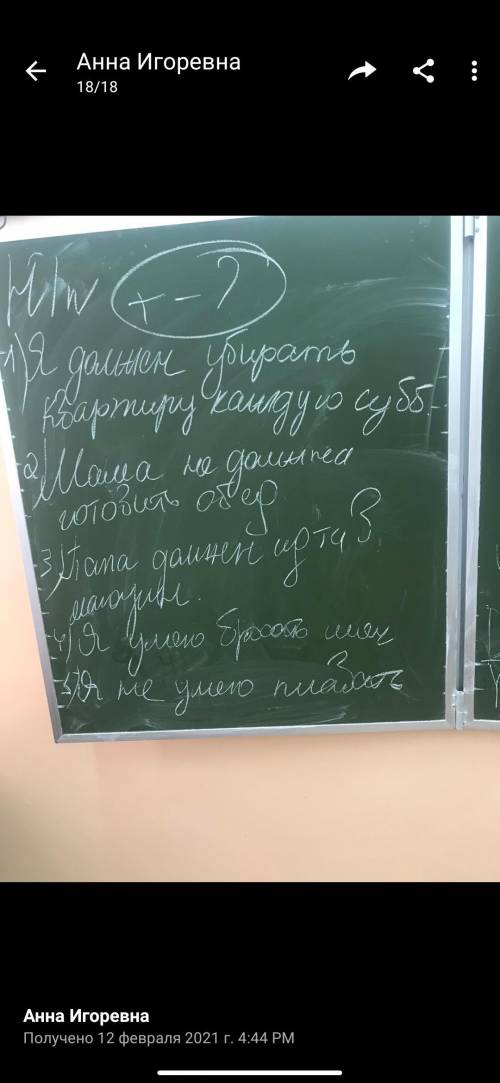 Анна Игоревна
18/18
H/w + - ?
1) Я должен убирать
квартиру каждую субб.
2) Мама не должна
готовить обед
3) Папа должен идти в
магазин.
4) Я умею бросать мяч
5) Я не умею плавать
Анна Игоревна
Получено 12 февраля 2021 г. 4:44 PM